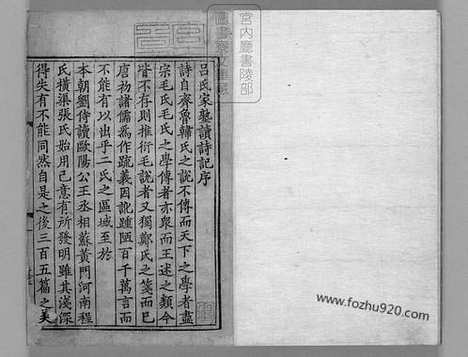 呂氏家塾讀詩記序
詩自齊魯韓氏之說不傳而天下之學者盡
宗毛氏毛氏之學傳者亦衆而王述之類今
皆不存則推衍毛說者又獨鄭氏之箋而已
唐初諸儒爲作疏義因訛踵陋百千萬言而
不能有以出乎二氏之區域至於
本朝劉侍讀歐陽公王丞相蘇黃門河南程
氏橫渠張氏始用己意有所發明雖其淺深
得失有不能同然自是之後三百五篇之美
宮内廳書陵部
www.fozhu920.com